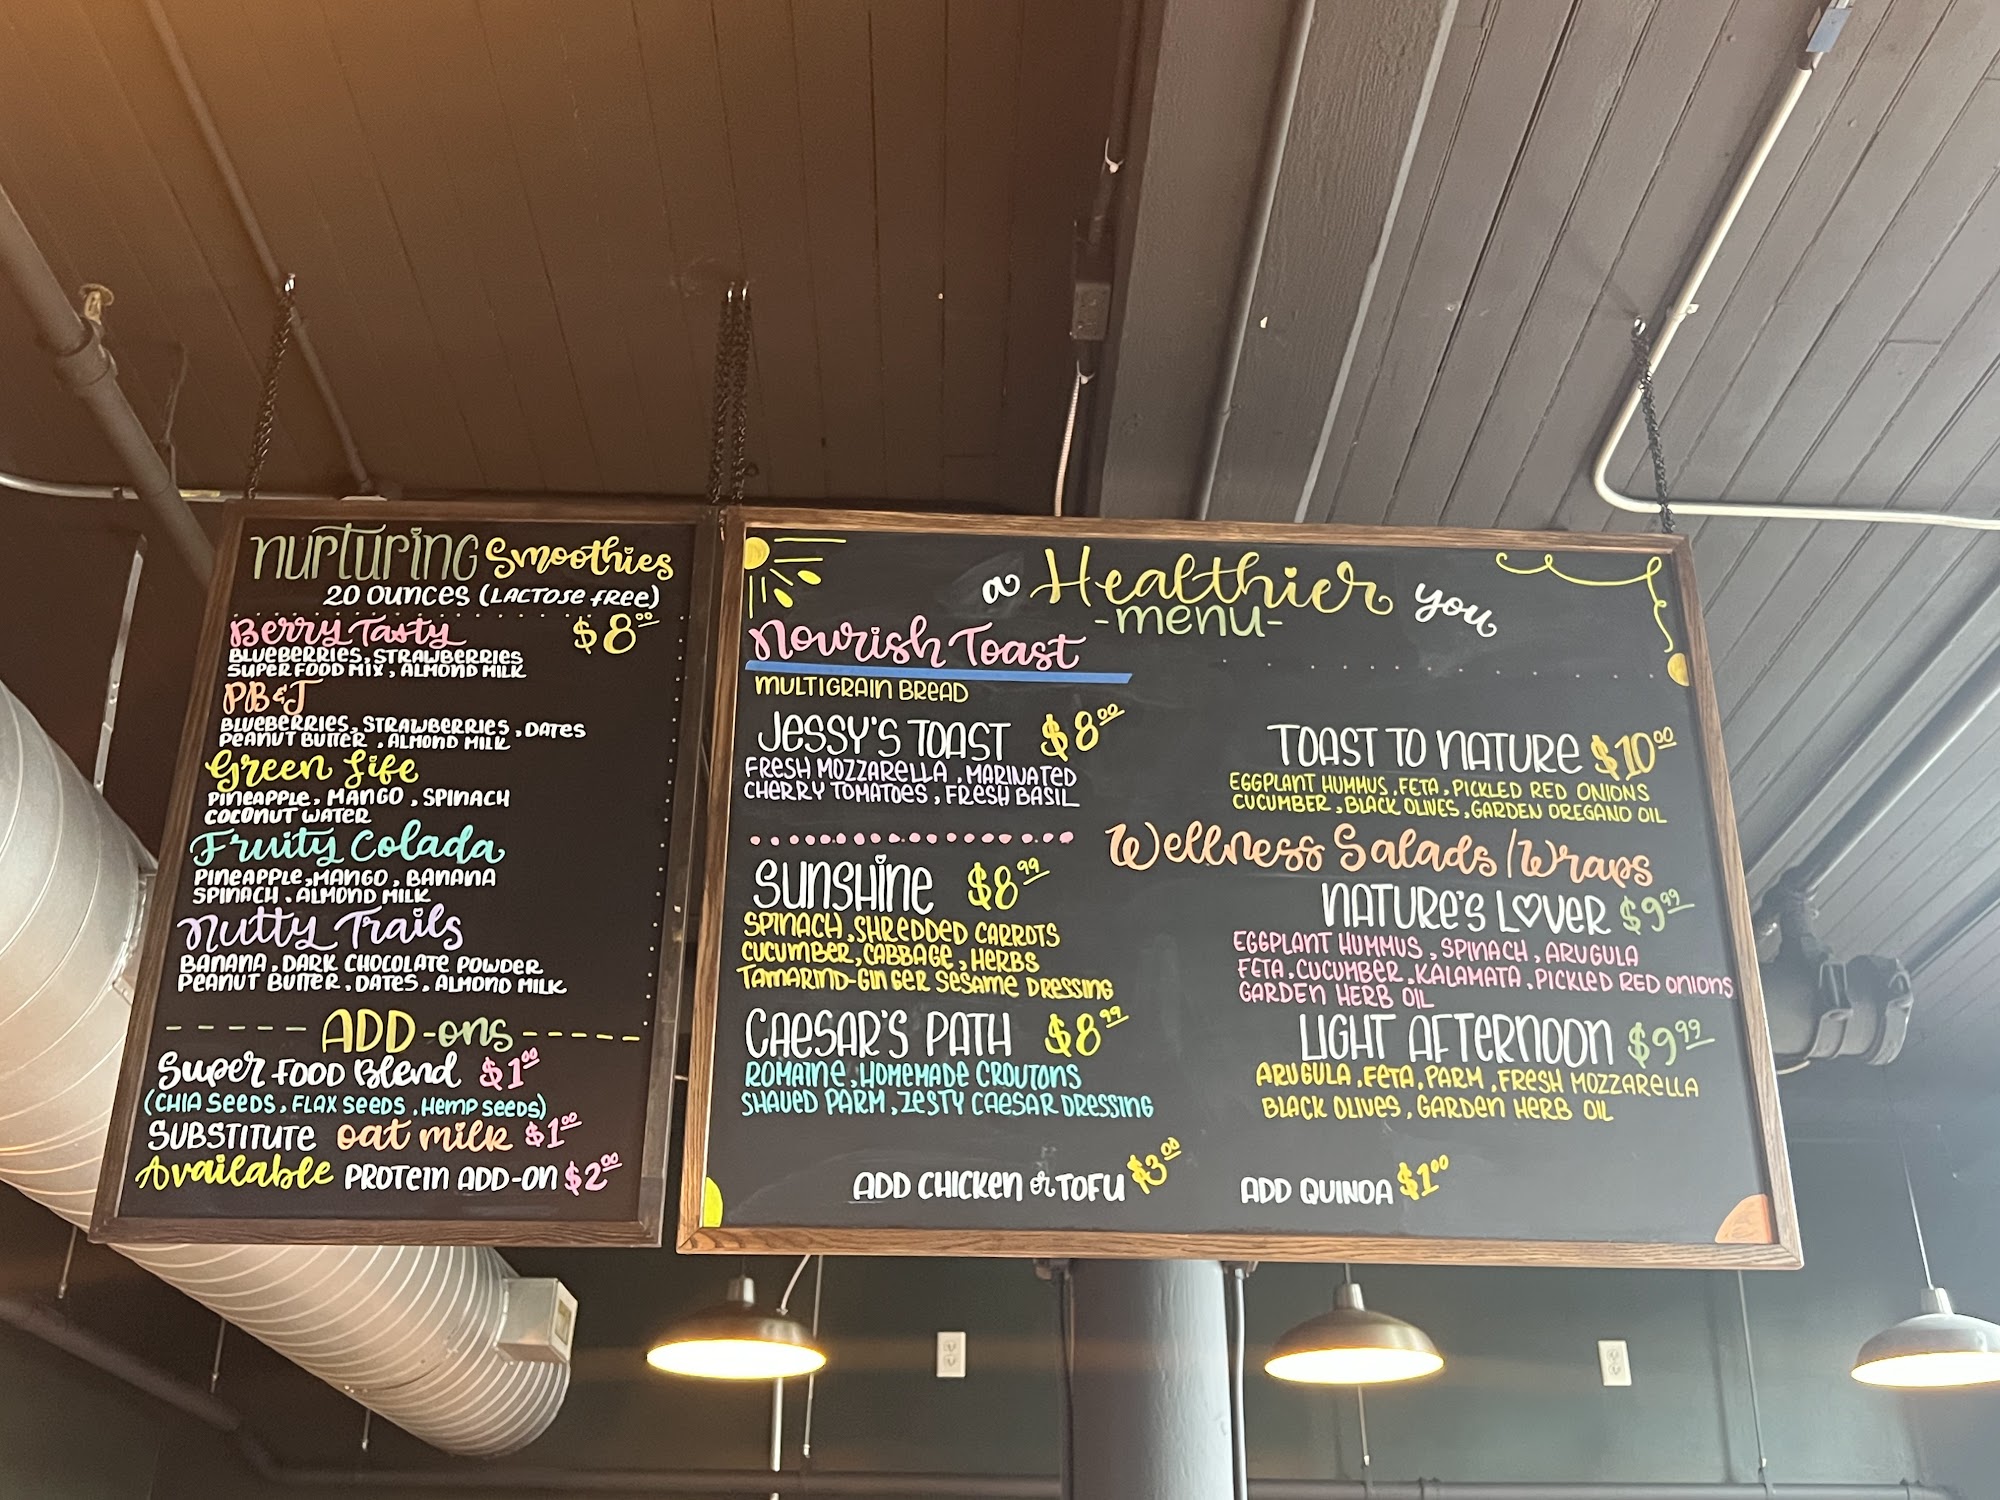 nurturing Smoothies
20 ounces (LACTOSE free)
Berry Tasty $8.00
BLUEBERRIES, STRAWBERRIES
SUPER FOOD MIX, ALMOND MILK
PB&J
BLUEBERRIES, STRAWBERRIES, DATES
PEANUT BUTTER, ALMOND MILK
Green Life
PINEAPPLE, MANGO, SPINACH
COCONUT WATER
Fruity Colada
PINEAPPLE, MANGO, BANANA
SPINACH, ALMOND MILK
Nutty Trails
BANANA, DARK CHOCOLATE POWDER
PEANUT BUTTER, DATES, ALMOND MILK
ADD-ons
Super FOOD Blend $1.00
(CHIA SEEDS, FLAX SEEDS, HEMP SEEDS)
SUBSTITUTE oat milk $1.00
Available PROTEIN ADD-ON $2.00
a Healthier you
-menu-
Nourish Toast
MULTIGRAIN BREAD
JESSY'S TOAST $8.00
FRESH MOZZARELLA, MARINATED
CHERRY TOMATOES, FRESH BASIL
TOAST TO NATURE $10.00
EGGPLANT HUMMUS, FETA, PICKLED RED ONIONS
CUCUMBER, BLACK OLIVES, GARDEN OREGANO OIL
Wellness Salads/Wraps
SUNSHINE $8.99
SPINACH, SHREDDED CARROTS
CUCUMBER, CABBAGE, HERBS
TAMARIND-GINGER SESAME DRESSING
CAESAR'S PATH $8.99
ROMAINE, HOMEMADE CROUTONS
SHAVED PARM, ZESTY CAESAR DRESSING
NATURE'S LOVER $9.99
EGGPLANT HUMMUS, SPINACH, ARUGULA
FETA, CUCUMBER, KALAMATA, PICKLED RED ONIONS
GARDEN HERB OIL
LIGHT AFTERNOON $9.99
ARUGULA, FETA, PARM, FRESH MOZZARELLA
BLACK OLIVES, GARDEN HERB OIL
ADD CHICKEN or TOFU $3.00
ADD QUINOA $1.00